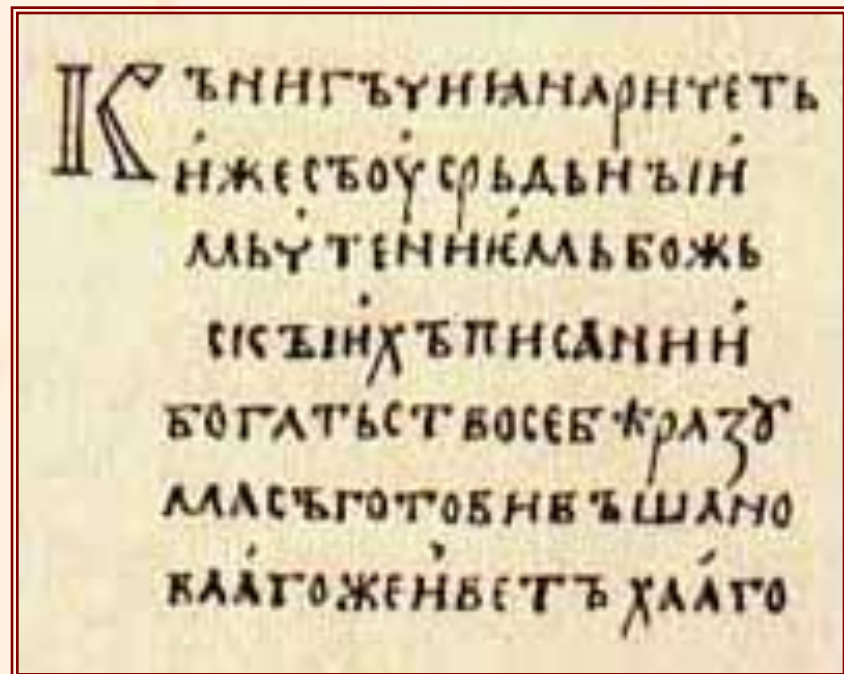 КЪНИГЪЧИꙖНАРИЧЕТЬ
И҆ЖЕСЪОУ҆СРЬДЬНЪІИ҆
МЬЧ҆ТЕНИѤ҆МЬБОЖЬ
СІСЪІИ҆ХЪПИСАНИИ҆
БОГАТЬСТВОСЕБѢРАЗꙊ
МАСЪГОТОВИВЪШАНО
ВАА҆ГОЖЕИ҆ВЕТЪХАА҆ГО